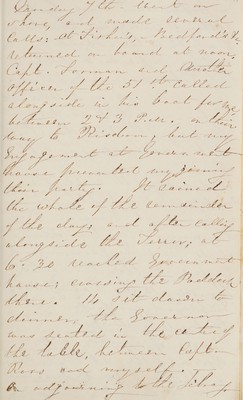 Sunday 7th Went on
shore, and made several
calls: at Fisher's, Bedford's &
returned on board at noon.
Capt. Forman and another
officer of the 51st called
alongside in his boat for me
between 2 & 3 P.M. on their
way to Risdon, but my
engagement at Government
house prevented my joining
their party. It rained
the whole of the remainder
of the day, and after calling
alongside the Terror, at
6.30 reached Government
house; crossing the Paddock
there. 14 sat down to
dinner, the Governor
was seated in the centre of
the table, between Captn
Ross and myself.
On adjourning to the Library